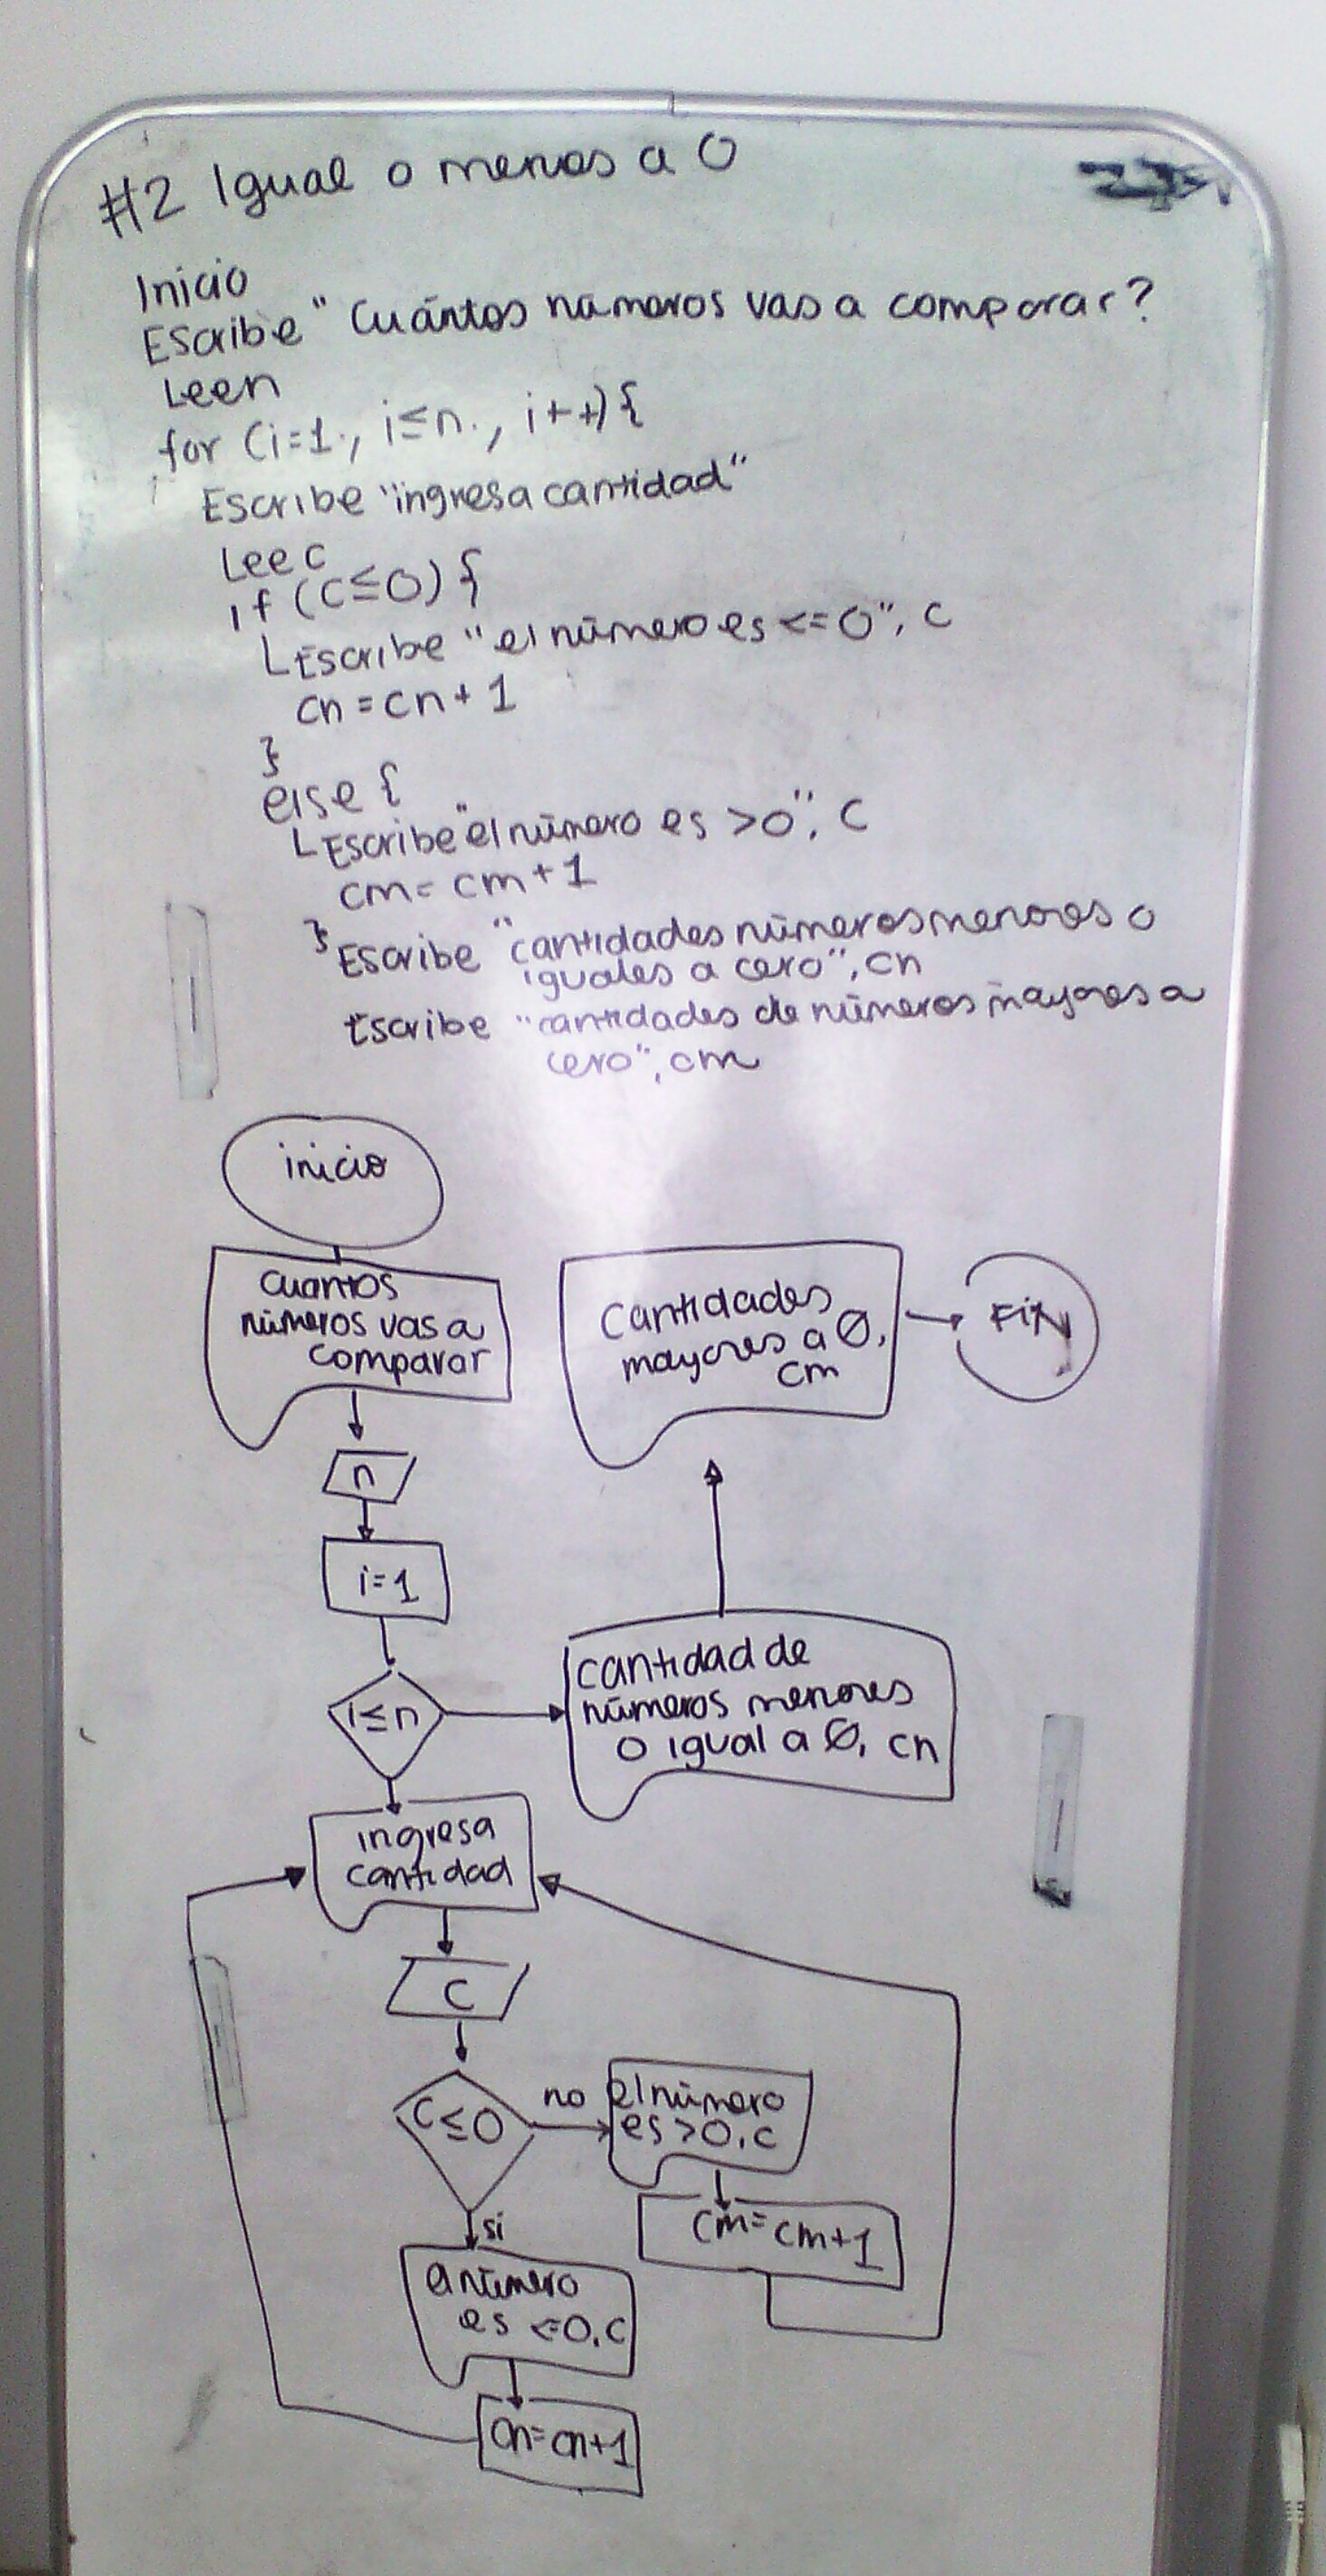 #2 Igual o menos a 0
Inicio
Escribe " Cuántos números vas a comparar?
Lee n
for (i=1., i≤n., i++) {
Escribe "ingresa cantidad"
Lee c
if (c≤0) {
Escribe "el número es <=0", c
cn = cn + 1
}
else {
Escribe "el número es >0", c
cm = cm + 1
}
Escribe "cantidades números menores o
iguales a cero", cn
Escribe "cantidades de números mayores a
cero", cm
inicio
cuantos
números vas a
comparar
n
i=1
i≤n
cantidad de
números menores
o igual a 0, cn
Cantidades
mayores a 0,
cm
FIN
ingresa
cantidad
c
c≤0
no
el número
es >0, c
cm = cm+1
si
el número
es <=0, c
cn = cn+1